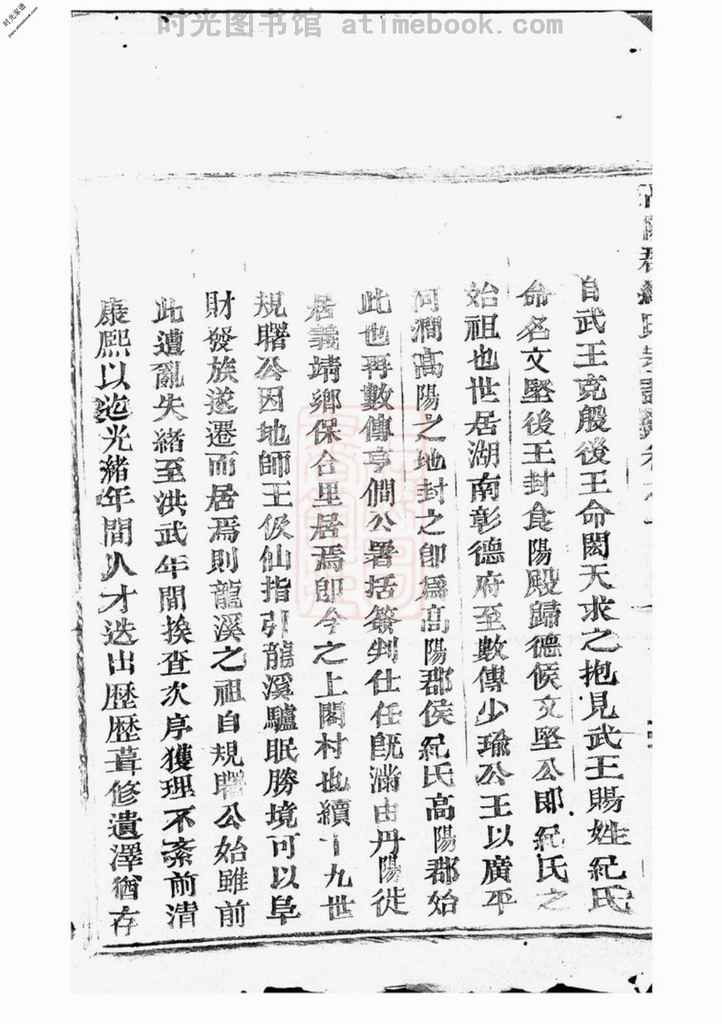 时光图书馆 atimebook.com
时光家谱
自武王克殷後王命閎天求之抱見武王賜姓紀氏
命名文堅後王封食陽殿歸德候文堅公即紀氏之
始祖也世居湖南彰德府至數傳少瑜公王以廣平
河澗高陽之地封之卽爲高陽郡侯紀氏高陽郡始
此也再數傳亨僩公署括簽判仕任旣滿由丹陽徙
居義靖鄉保合里居焉卽今之上閣村也續十九世
規曙公因地師王伋仙指引龍溪驢眠勝境可以阜
財發族遂遷而居焉則龍溪之祖自規曙公始雖前
此遭亂失緒至洪武年間挨查次序獲理不紊前清
康熙以迨光緒年間人才迭出歷歷葺修遺澤猶存